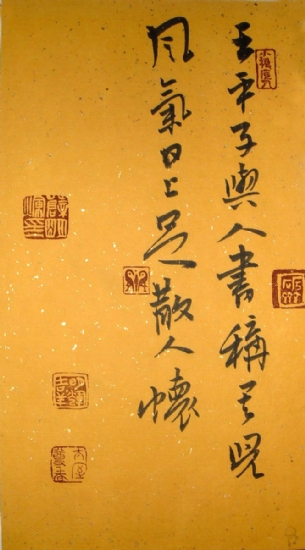 王平子與人書稱其兒
風氣日上足散人懷